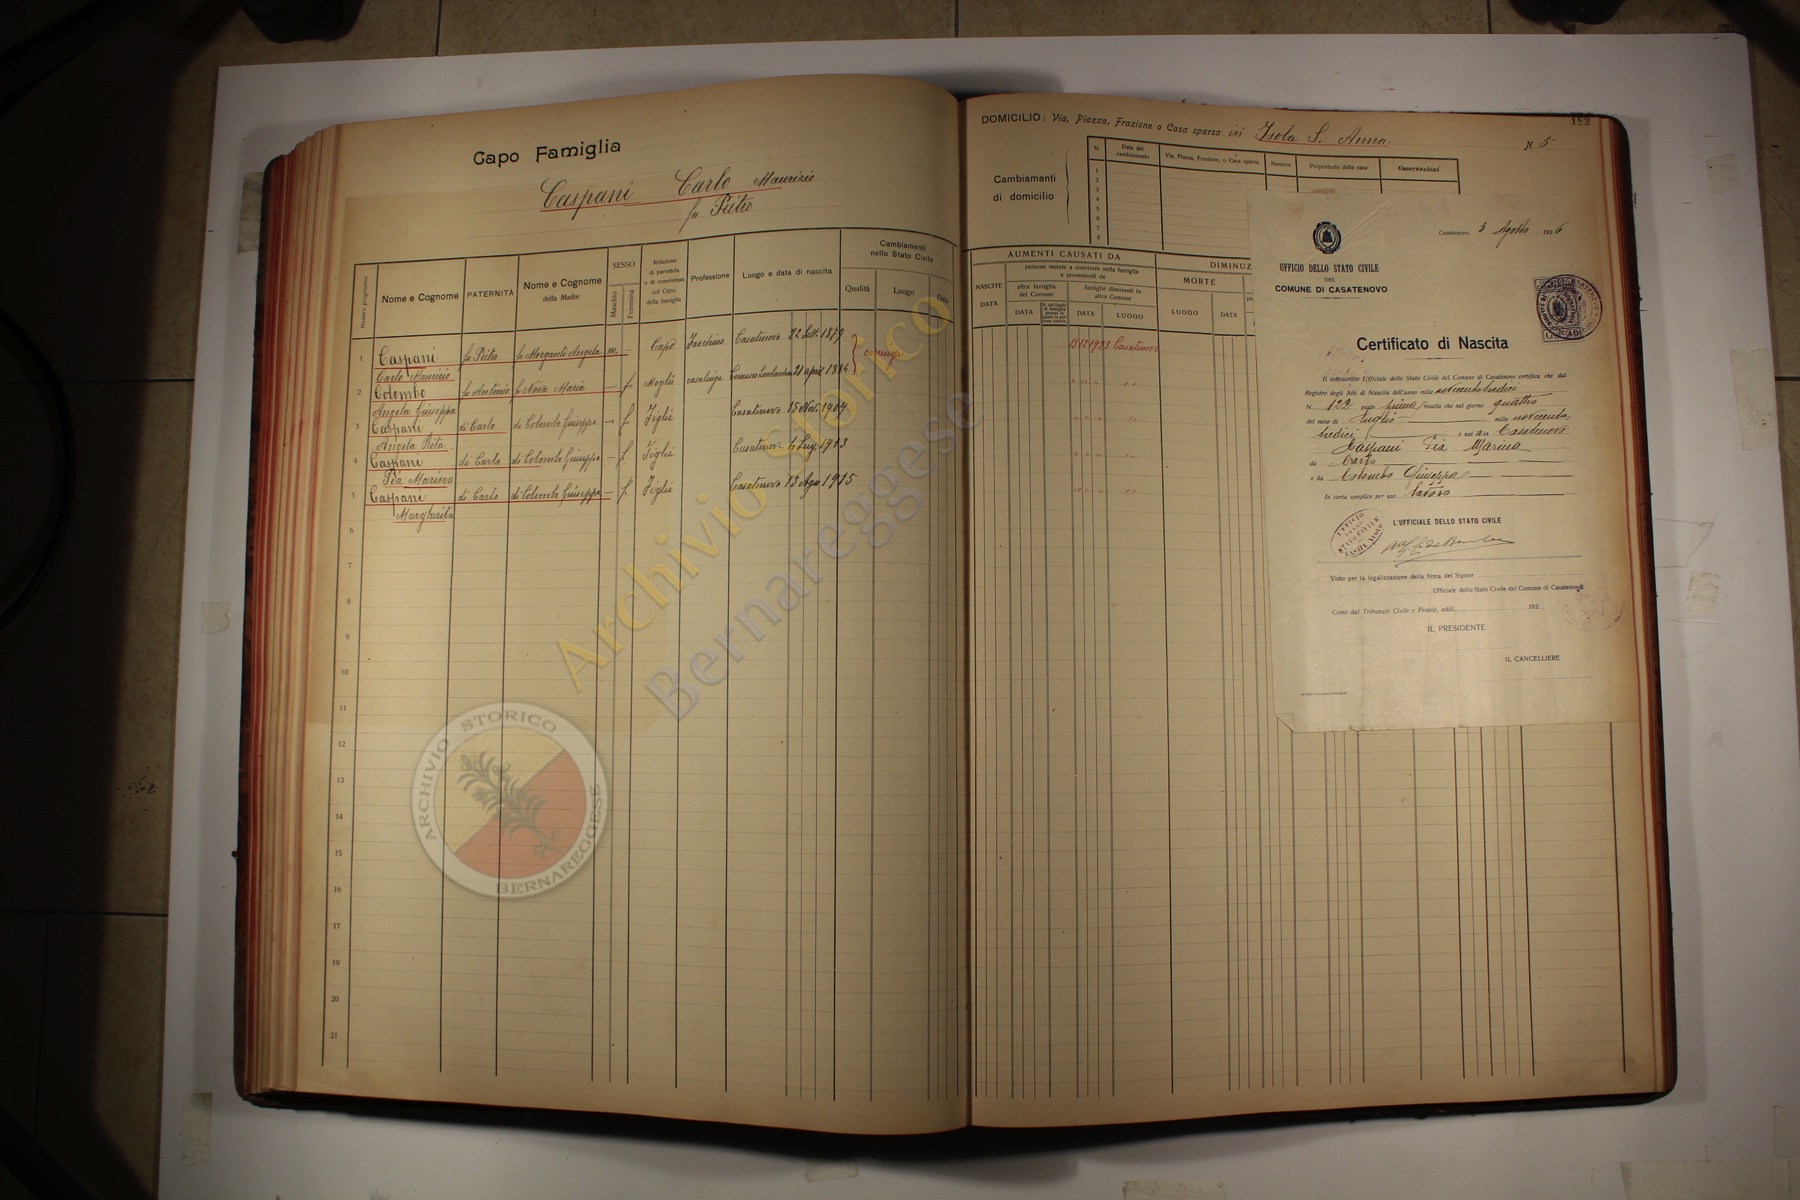 Capo Famiglia
Caspani Carlo Maurizio
fu Pietro
Numero progressivo
Nome e Cognome
PATERNITÀ
Nome e Cognome
della Madre
SESSO
Maschio
Femmina
Relazione
di parentela
o di convivenza
col Capo
della famiglia
Professione
Luogo e data di nascita
Cambiamenti
nello Stato Civile
Qualità
Luogo
Data
1 Caspani fu Pietro fu Morganti Angela m. — Capo Facchino Casatenovo 22 Sett. 1879 coniugi
Carlo Maurizio
2 Colombo fu Antonio fu Nava Maria — f. Moglie casalinga 21 april 1884
Angela Giuseppa
3 Caspani di Carlo di Colombo Giuseppa — f. Figlia Casatenovo 15 Nov. 1907
Angela Rita
4 Caspani di Carlo di Colombo Giuseppa — f. Figlia Casatenovo 4 Lug. 1913
Pia Marina
5 Caspani di Carlo di Colombo Giuseppa — f. Figlia Casatenovo 13 Ago 1915
Margherita
6
7
8
9
10
11
12
13
14
15
16
17
18
19
20
21
182
DOMICILIO: Via, Piazza, Frazione o Casa sparsa in Isola S. Anna N. 5
Cambiamenti
di domicilio
N.
Data del
cambiamento
Via, Piazza, Frazione, o Casa sparsa
Numero
Proprietario della casa
Osservazioni
1
2
3
4
5
6
7
8
AUMENTI CAUSATI DA
NASCITE
DATA
persone venute a convivere nella famiglia
e provenienti da
altra famiglia
del Comune
famiglie dimoranti in
altro Comune
DATA
DATA
LUOGO
DIMINUZ
MORTE
LUOGO
DATA
15 12 1923 Casatenovo
Casatenovo, 3 Agosto 1926
UFFICIO DELLO STATO CIVILE
DEL
COMUNE DI CASATENOVO
Certificato di Nascita
Il sottoscritto Ufficiale dello Stato Civile del Comune di Casatenovo certifica che dal
Registro degli Atti di Nascita dell'anno mille novecentotredici
N. 122 parte prima risulta che nel giorno quattro
del mese di Luglio mille novecento
tredici è nat a in Casatenovo
Caspani Pia Marina
da Carlo
e da Colombo Giuseppa
In carta semplice per uso lavoro
L'UFFICIALE DELLO STATO CIVILE
UFFICIO
DELLO
STATO CIVILE
CASATENOVO
Visto per la legalizzazione della firma del Signor
Ufficiale dello Stato Civile del Comune di Casatenovo.
Come dal Tribunale Civile e Penale, addì 192
IL PRESIDENTE
IL CANCELLIERE
Archivio storico
Bernareggese
ARCHIVIO STORICO
BERNAREGGESE